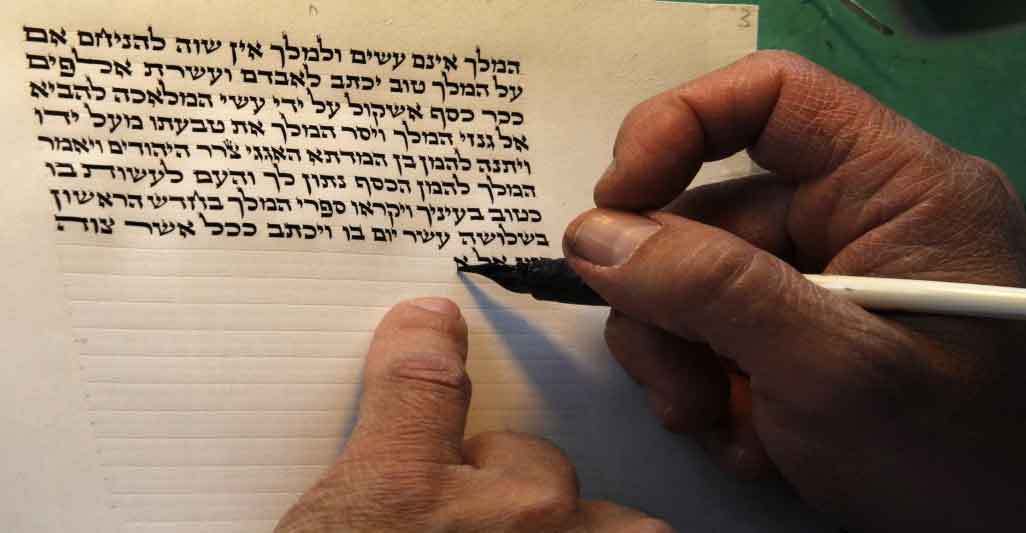 3
המלך אינם עשים ולמלך אין שוה להניחם אם
על המלך טוב יכתב לאבדם ועשרת אלפים
ככר כסף אשקול על ידי עשי המלאכה להביא
אל גנזי המלך ויסר המלך את טבעתו מעל ידו
ויתנה להמן בן המדתא האגגי צרר היהודים ויאמר
המלך להמן הכסף נתון לך והעם לעשות בו
כטוב בעיניך ויקראו ספרי המלך בחדש הראשון
בשלושה עשר יום בו ויכתב ככל אשר צוה
אל א